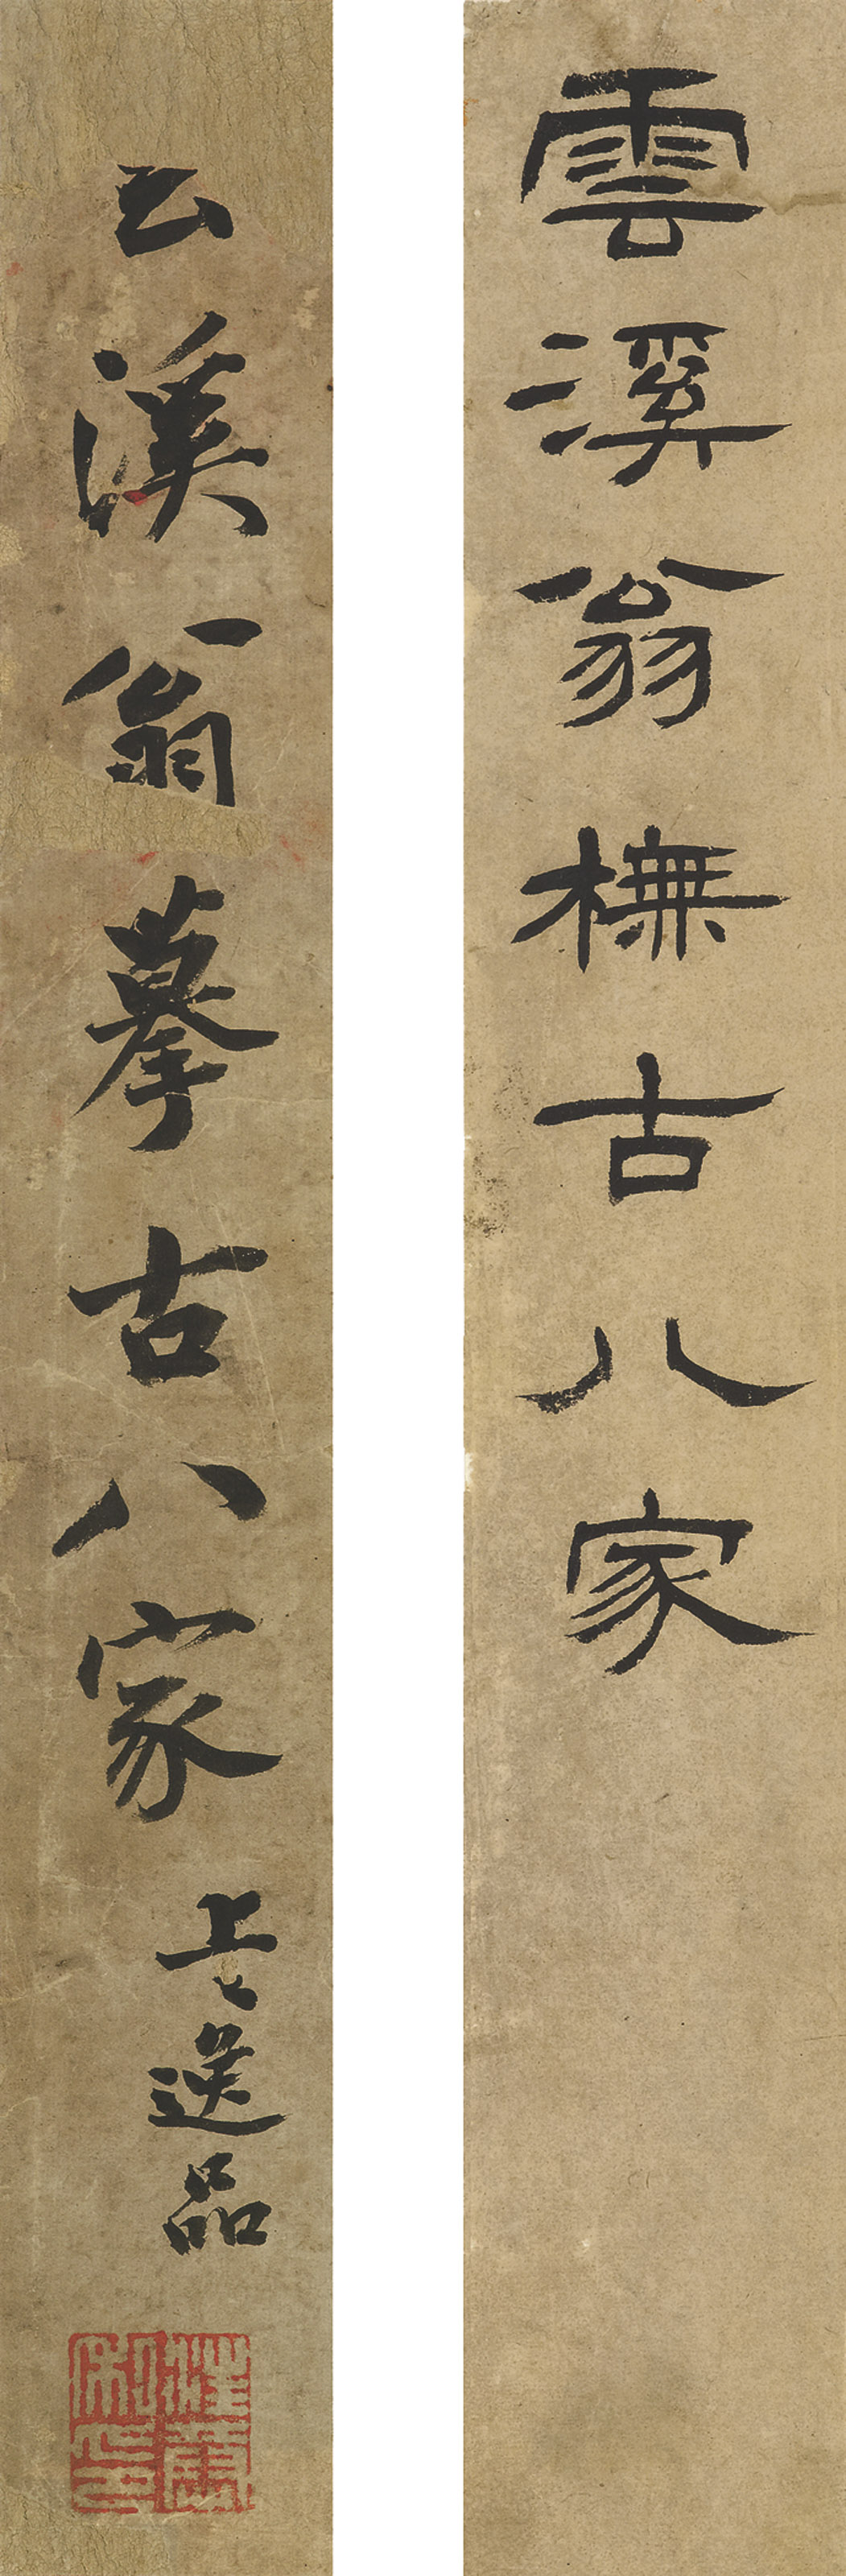 雲溪翁橅古八家
云溪翁摹古八家 上上逸品